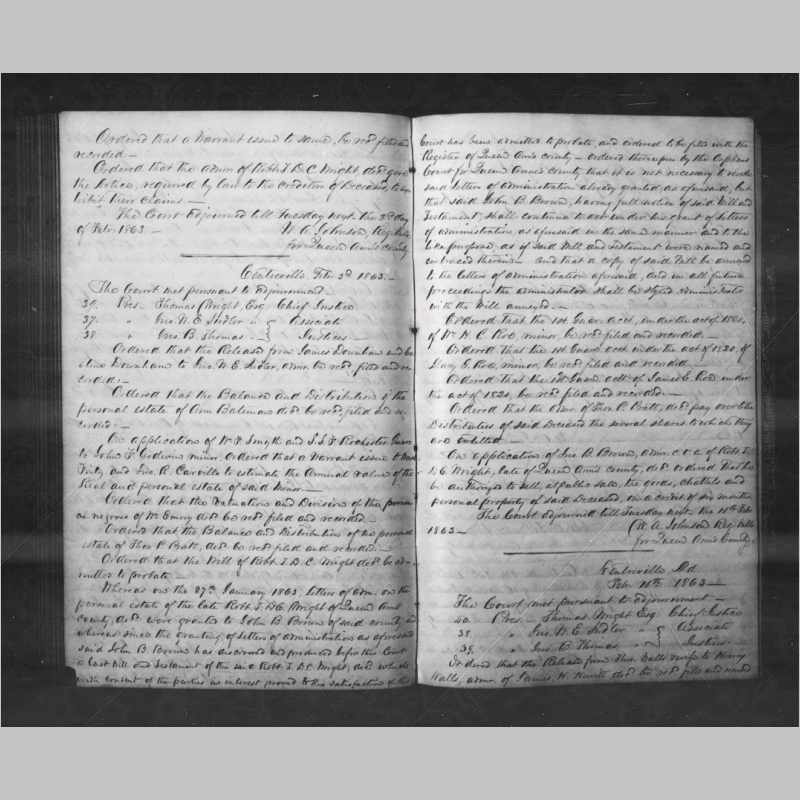 Ordered that a Warrant issue to same, be recd filed and
recorded —
Ordered that the admr of Robt T. D. C. Wright, decd give
the Notice, required by law to the creditors of Deceased, to ex
hibit their claims. —
The Court adjourned till Tuesday next the 3rd day
of Feby. 1863 — W. A. Johnson, Reg. Wills
for Queen Ann's County
Centreville Feb. 3d 1863. —
The Court met pursuant to adjournment.
39. Pres. Thomas Wright Esq. Chief Justice
37. " Jno. W. E. Sudler " Associate
38 " Jno. B. Thomas — Justices. —
Ordered that the Release from James Downham and
Downham to Jno. W. E. Sudler, admr be recd filed and re
corded. —
Ordered that the Balance and Distribution of the
personal estate of Ann Bateman decd be recd filed and re
corded. —
On application of Wm F. Smyth and Rochester
to John F. minor, ordered that a warrant issue to
and Jno. R. Carville to estimate the Annual value of the
Real and personal estate of said Minor. —
Ordered that the Valuation and Division of the
negroes of Wm Emory decd be recd filed and recorded.
Ordered that the Balance and Distribution of the personal
estate of Thos. P. Bratt, decd be recd filed and recorded. —
Ordered that the Will of Robt. T. D. C. Wright decd be ad-
mitted to probate. —
Whereas on the 27th January 1863, letters of Adm. on the
personal estate of the late Robt. T. D. C. Wright of Queen Ann's
county, decd were granted to John B. Brown of said county and
whereas since the granting of letters of administration as aforesaid
said John B. Brown has discovered and produced before this Court
a last Will and testament of the said Robt. T. D. C. Wright, and
with consent of the parties in interest proved to the satisfaction of this
Court has been admitted to probate, and ordered to be filed with the
Register of Queen Ann's county — ordered thereupon by the Orphans
Court for Queen Ann's county that it is not necessary to revoke
said letters of administration already granted, as aforesaid, but
that said John B. Brown, having full notice of said Will and
Testament, shall continue to act under his grant of letters
of administration, as aforesaid in the same manner and to the
like purpose, as if said Will and testament were named and
embraced therein — and that a copy of said Will be annexed
to the letters of administration aforesaid, and in all future
proceedings the administrator shall be styled Administrator
with the Will annexed. —
Ordered that the 1st Guar. acct, under the act of 18
of Wm H. C. Roe, minor, be recd filed and recorded —
Ordered that the 1st Guar acct under the act of 1820, of
E. Roe, minor, be recd filed and recorded —
Ordered that the Guar. acct. of James E. Roe under
the act of 1820, be recd filed and recorded. —
Ordered that the admr. of Thos. P. Bratt, decd pay over the
Distributees of said deceased the several shares to which they
are entitled —
On application of Jno. B. Brown, admr. c. t. a of Robt. T.
D. C. Wright, late of Queen Ann's county, decd. ordered that he
be authorized to sell, at public sale, the goods, chattels and
personal property of said Deceased, on a credit of six months
The Court adjourned till Tuesday next the 10th Feby
1863 — W. A. Johnson Reg. Wills
for Queen Ann's County.
Centreville Md
Feby. 1863 —
The Court met pursuant to adjournment —
40. Pres — Thomas Wright Esq. Chief Justice
38. " Jno. W. E. Sudler " Associate
39. " Jno. B. Thomas Justices —
Ordered that the Release from wife to Henry
admr. of James W. decd be recd filed and